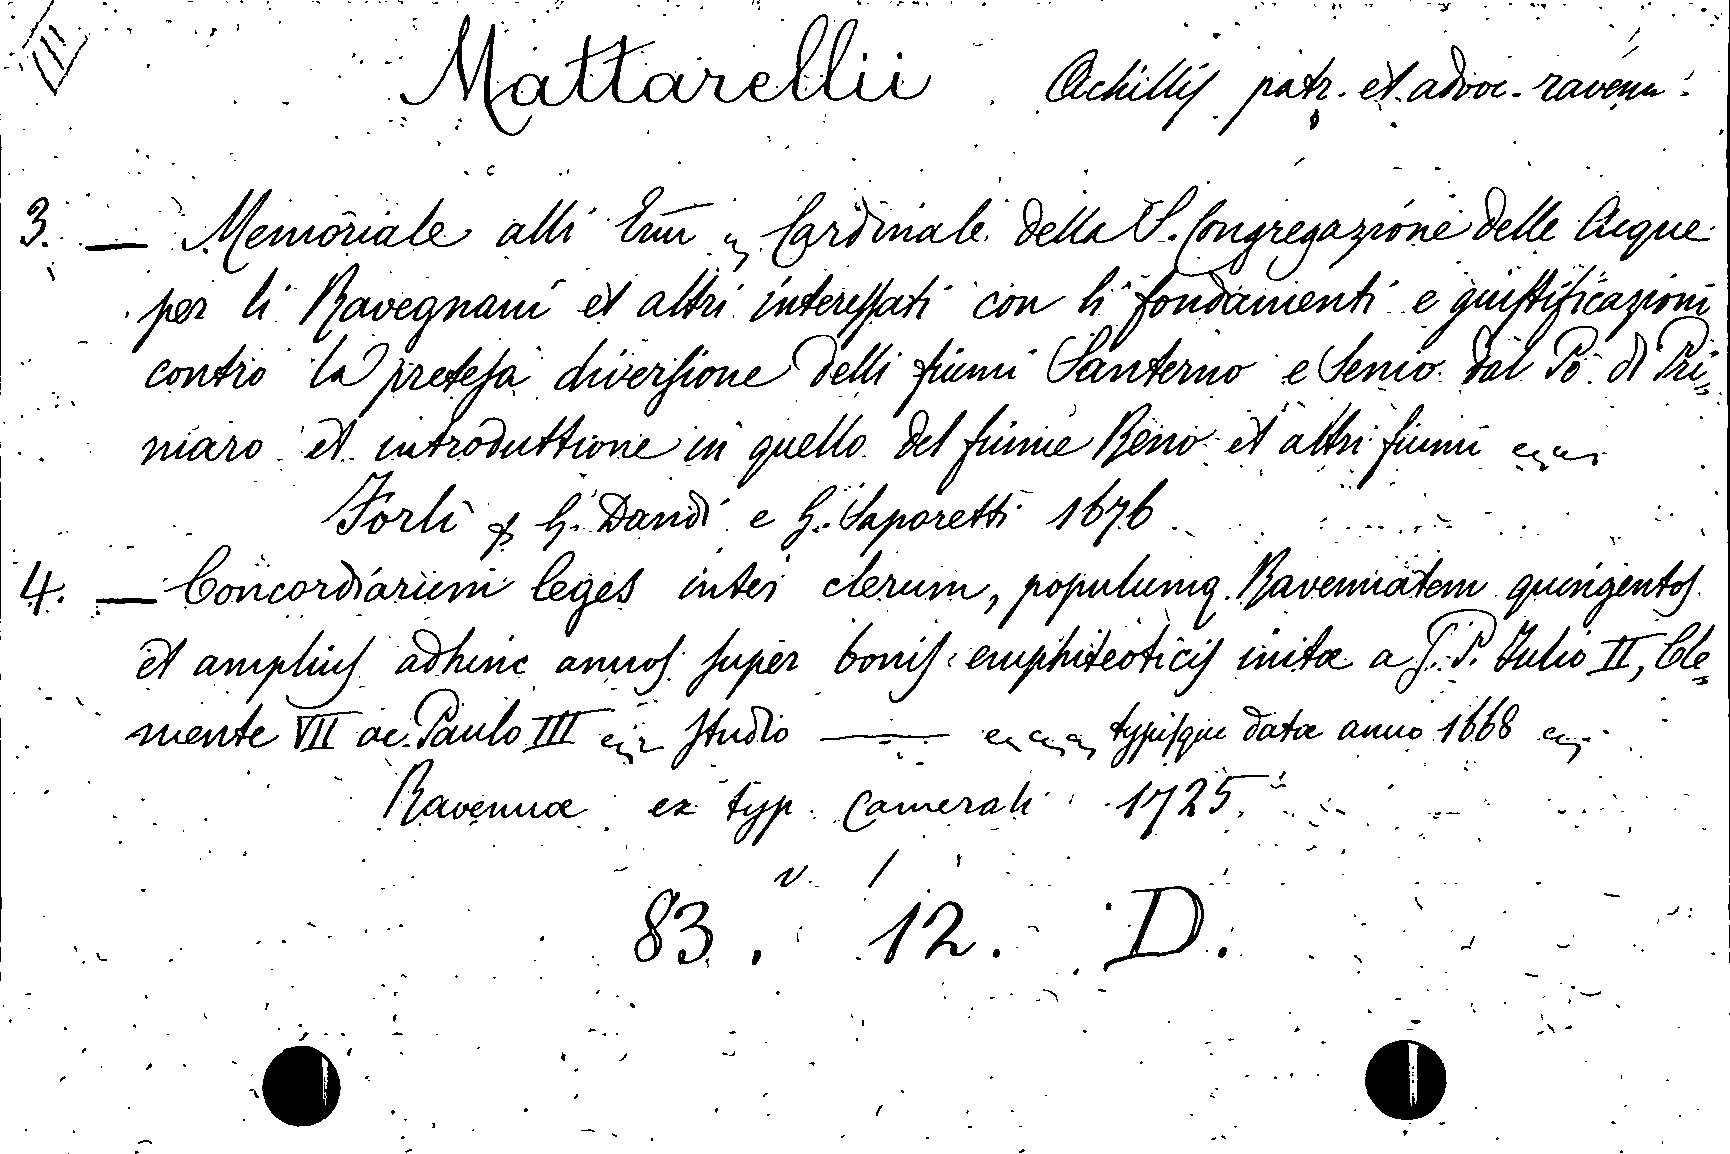 III
Mattarellii Achillis patr. et advoc. ravenn.
3. — Memoriale alli Emi Cardinale della S. Congregazione delle Acque
per li Ravegnani et altri interessati con li fondamenti e giustificazioni
contro la pretesa diversione delli fiumi Santerno e Senio dal Po di Pri„
maro et introduttione in quello del fiume Reno et altri fiumi
Forlì p G. Dandi e G. Saporetti 1676
4. — Concordiarum leges inter clerum, populumq. Ravennatem quingentos
et amplius adhinc annos super bonis emphiteoticis initæ a S. P. Julio II, Cle„
mente VII ac Paulo III studio — typisque datæ anno 1668
Ravennæ ex typ. Camerali 1725.
83. 12. D.